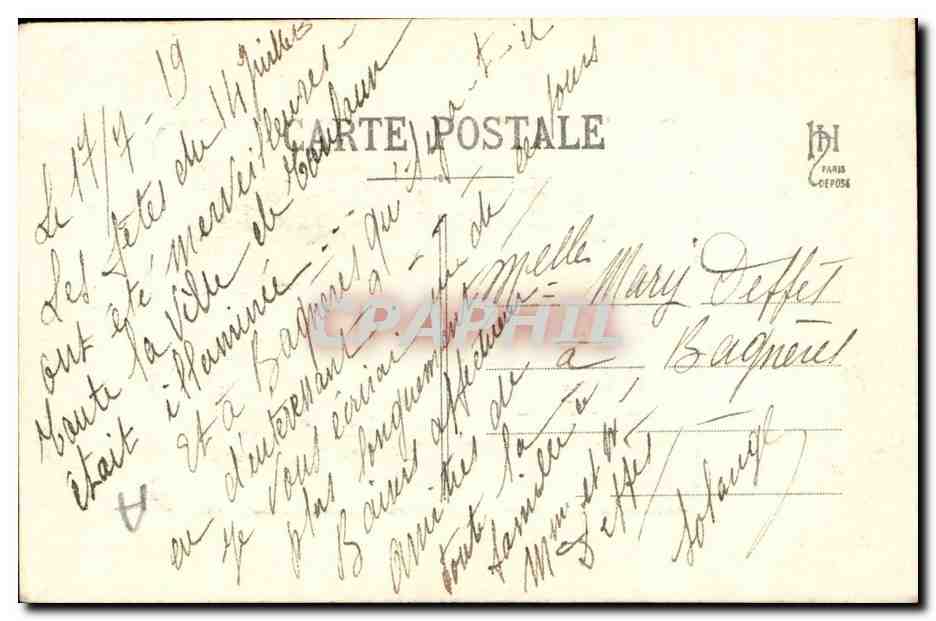 CARTE POSTALE
PARIS
DEPOSE
Le 17/7 - 19
Les fêtes du 14 Juillet
ont été merveilleuses -
Toute la ville de Toulouse
était illuminée...
Et à Bagnères qu'y a-t-il
eu d'intéressant?
Je vous écrirai
plus longuement de ce jours
Baisers affectueux
amitiés de
toute la
famille à
Mme et Mr
Deffès
Solange
Melle Mary Deffès
à Bagnères
CPAPHIL
A